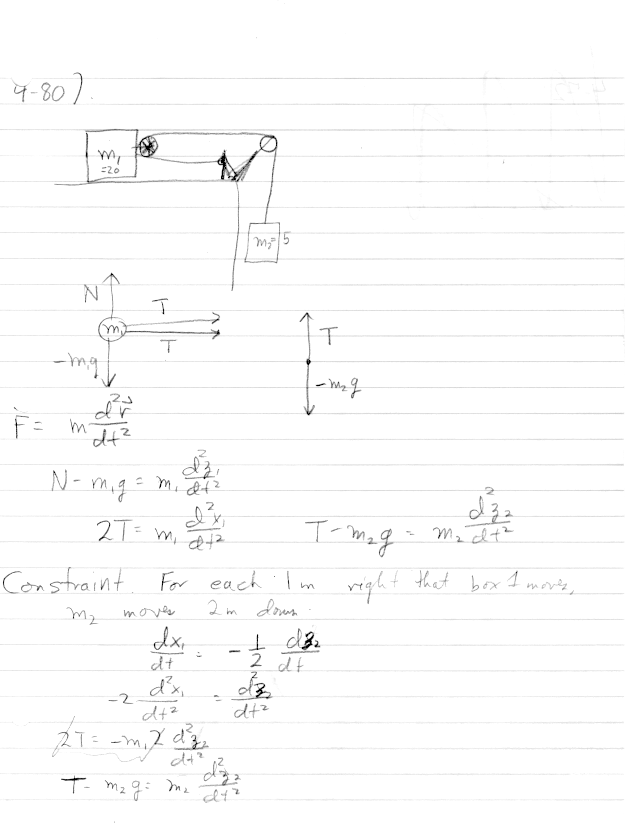 4-80).
m₁
=20
m₂= 5
N
T
m₁
T
-m₁g
T
-m₂g
F = m d²r⃗/dt²
N - m₁g = m₁ d²z₁/dt²
2T = m₁ d²x₁/dt²    T - m₂g = m₂ d²z₂/dt²
Constraint. For each 1m right that box 1 moves,
m₂ moves 2m down.
dx₁/dt = -1/2 dz₂/dt
-2 d²x₁/dt² = d²z₂/dt²
2T = -m₁2 d²z₂/dt²
T - m₂g = m₂ d²z₂/dt²